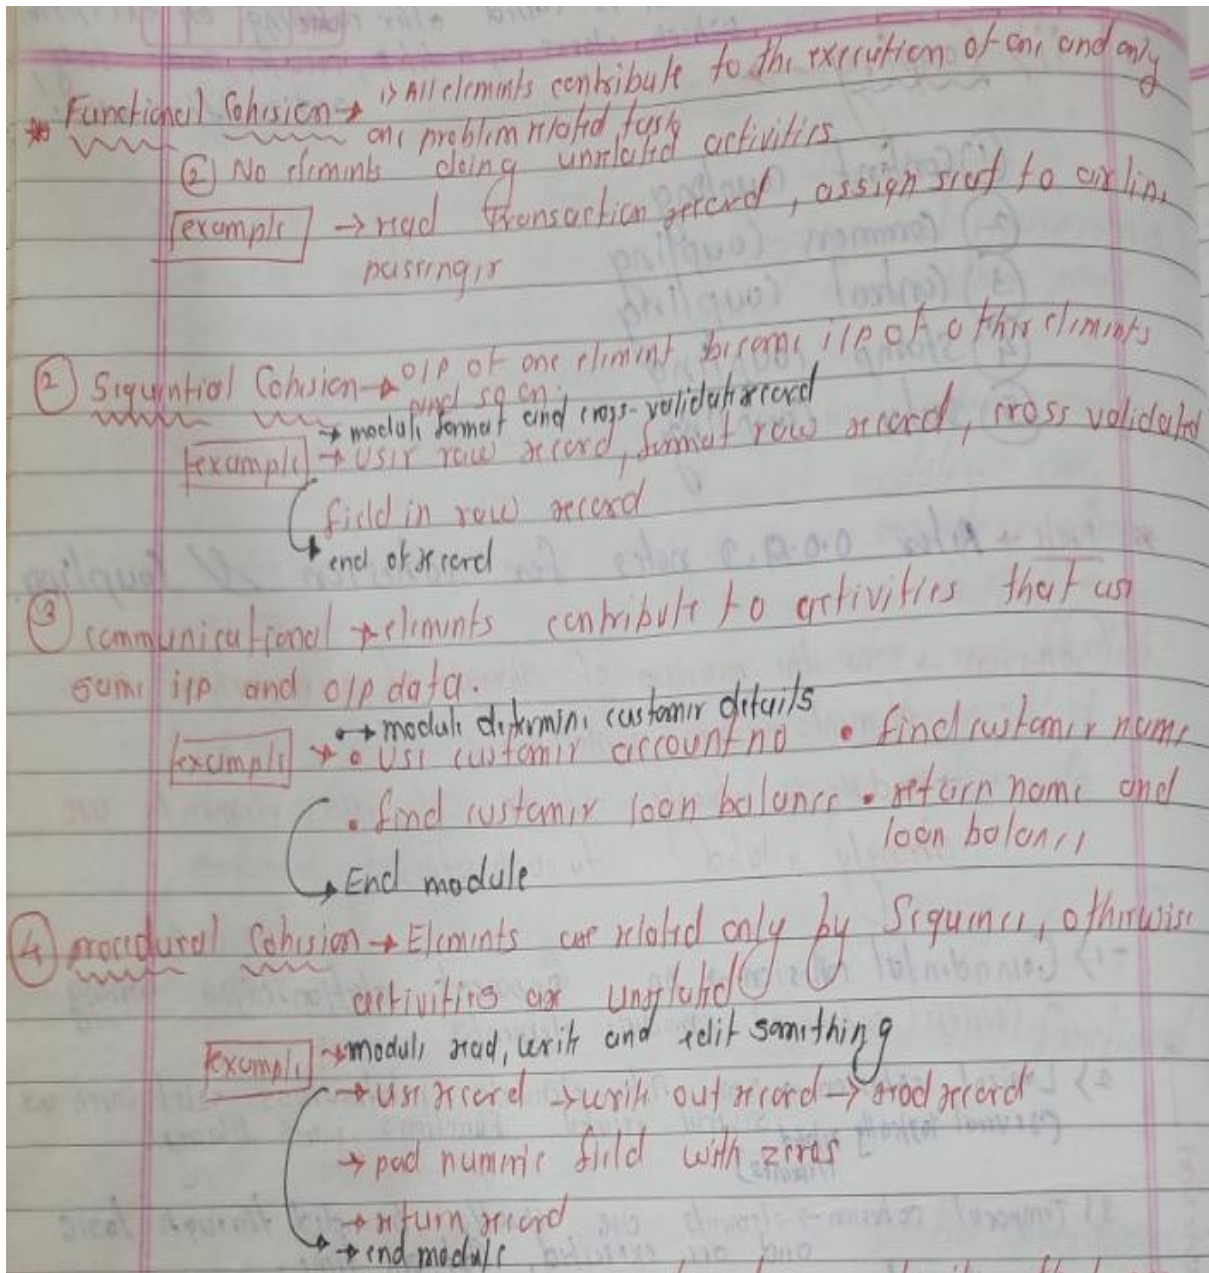 Functional Cohesion → 1) All elements contribute to the execution of one and only
one problem related task
② No elements doing unrelated activities
example → read transaction record, assign seat to airline
passinger
② Sequential Cohesion → O/P of one element become i/p of other elements
and so on.
→ module format and cross-validate record
example → user raw record, format raw record, cross validated
field in raw record
→ end of record
③ communicational → elements contribute to activities that use
same i/p and o/p data.
→ module determine customer details
example → • Use customer account no • find customer name
• find customer loan balance • return name and
loan balance
→ End module
④ procedural Cohesion → Elements are related only by Sequence, otherwise
activities are unrelated
example → module read, write and edit somithing
→ use record → write out record → read record
→ pad numeric field with zeros
→ return record
→ end module